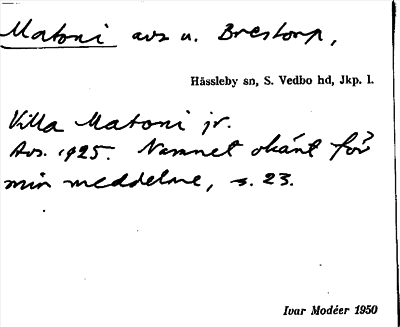 Matoni avs u. Brestorp,
Hässleby sn, S. Vedbo hd, Jkp. l.
Villa Matoni jr.
Avs. 1925. Namnet okänt för
min meddelare, s. 23.
Ivar Modéer 1950